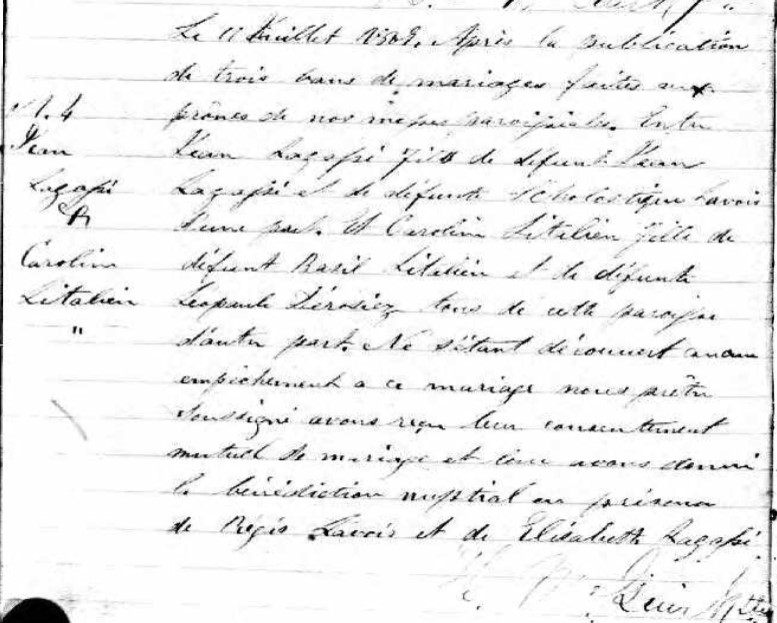 Le 11 Juillet 1909. Après la publication
de trois bans de mariages faites aux
M. 4
prônes de nos messes paroissiales. Entre
Jean
Jean Lagassé fils de défunt Jean
Lagassé
Lagassé et de défunte Scholastique Lavois
&
d'une part. Et Carolin Litalien fille de
Carolin
défunt Basil Litalien et de défunte
Litalien
Dérosiez tous de cette paroisse
"
d'autre part. Ne s'étant découvert aucun
empêchement a ce mariage nous prêtre
soussigné avons reçu leur consentement
mutuel de mariage et leur avons donné
la bénédiction nuptial en présence
de Régis Lavois et de Elisabeth Lagassé.